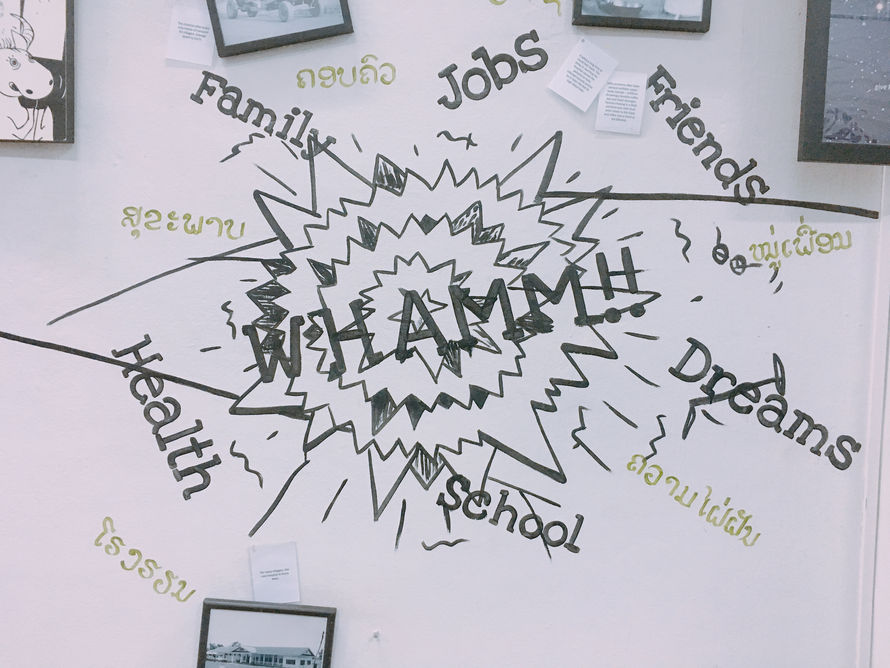 Jobs
Family
ຄອບຄົວ
Friends
ສຸຂະພາບ
ໝູ່ເພື່ອນ
WHAMMH
Health
Dreams
School
ຄວາມໄຝ່ຝັນ
ໂຮງຮຽນ